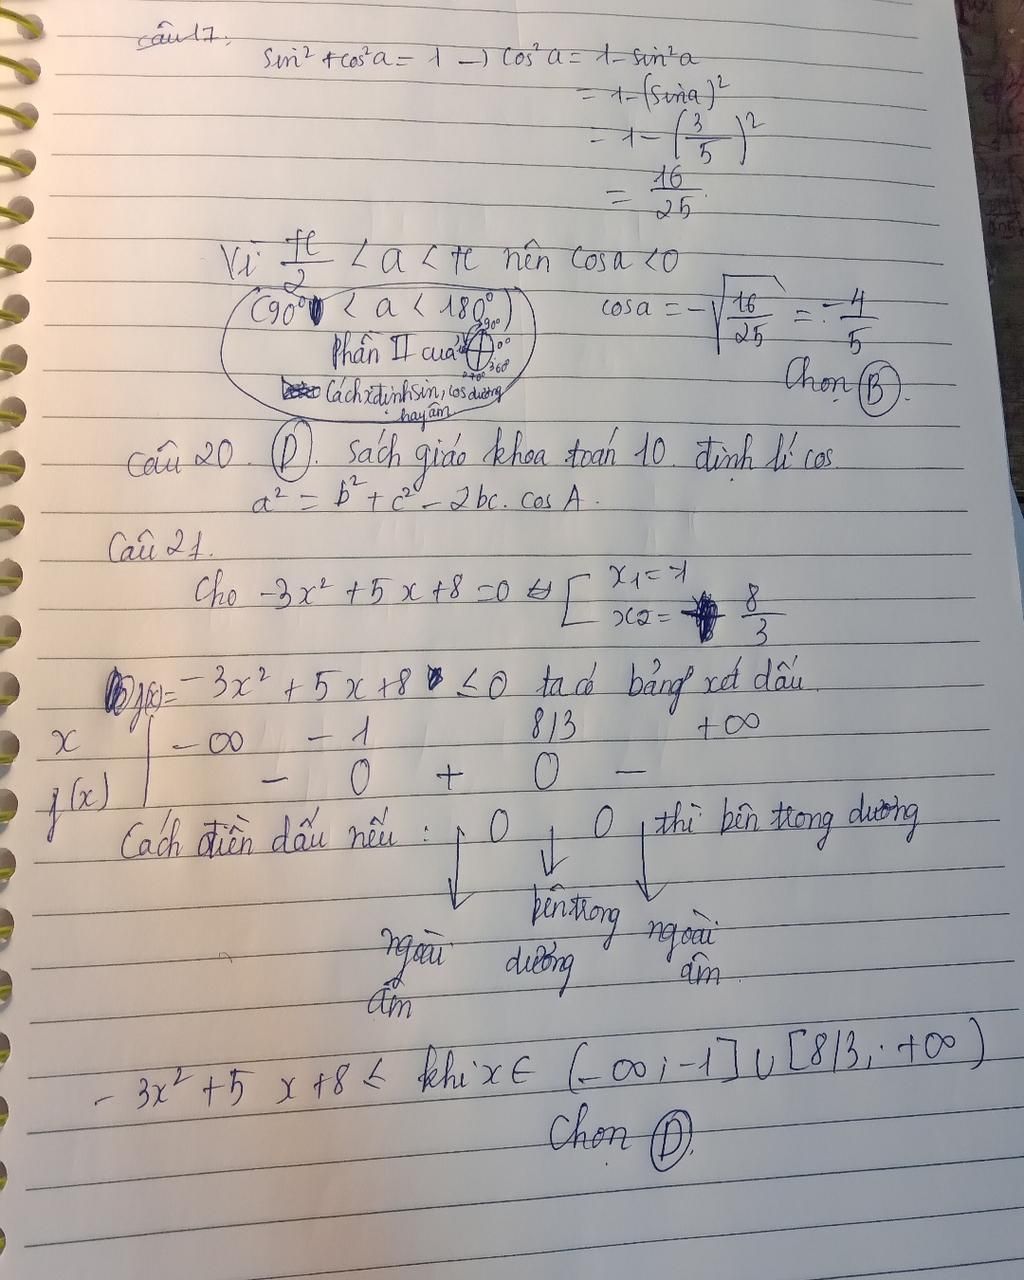 Câu 17.
sin² + cos²a = 1 → cos²a = 1 - sin²a
= 1 - (sin a)²
= 1 - (3/5)²
= 16/25
Vì π/2 < a < π nên cosa < 0
(90° < a < 180°)
cosa = -√(16/25) = -4/5
Phần II của
90°
0°
360°
Cách xđịnh sin, cos dương
hay âm
Chọn B.
Câu 20. D. Sách giáo khoa toán 10. định lí cos.
a² = b² + c² - 2bc. cos A.
Câu 21.
Cho -3x² + 5x + 8 = 0 ⇔ [ x1 = -1
x2 = 8/3
f(x) = -3x² + 5x + 8 ≤ 0 ta có bảng xét dấu.
x | -∞ -1 8/3 +∞
f(x) | - 0 + 0 -
Cách điền dấu nếu : , 0 , 0 , thì bên trong dương
bên trong
dương
ngoài
âm
ngoài
âm.
- 3x² + 5 x + 8 ≤ khi x ∈ (-∞; -1] ∪ [8/3; +∞)
Chọn D.